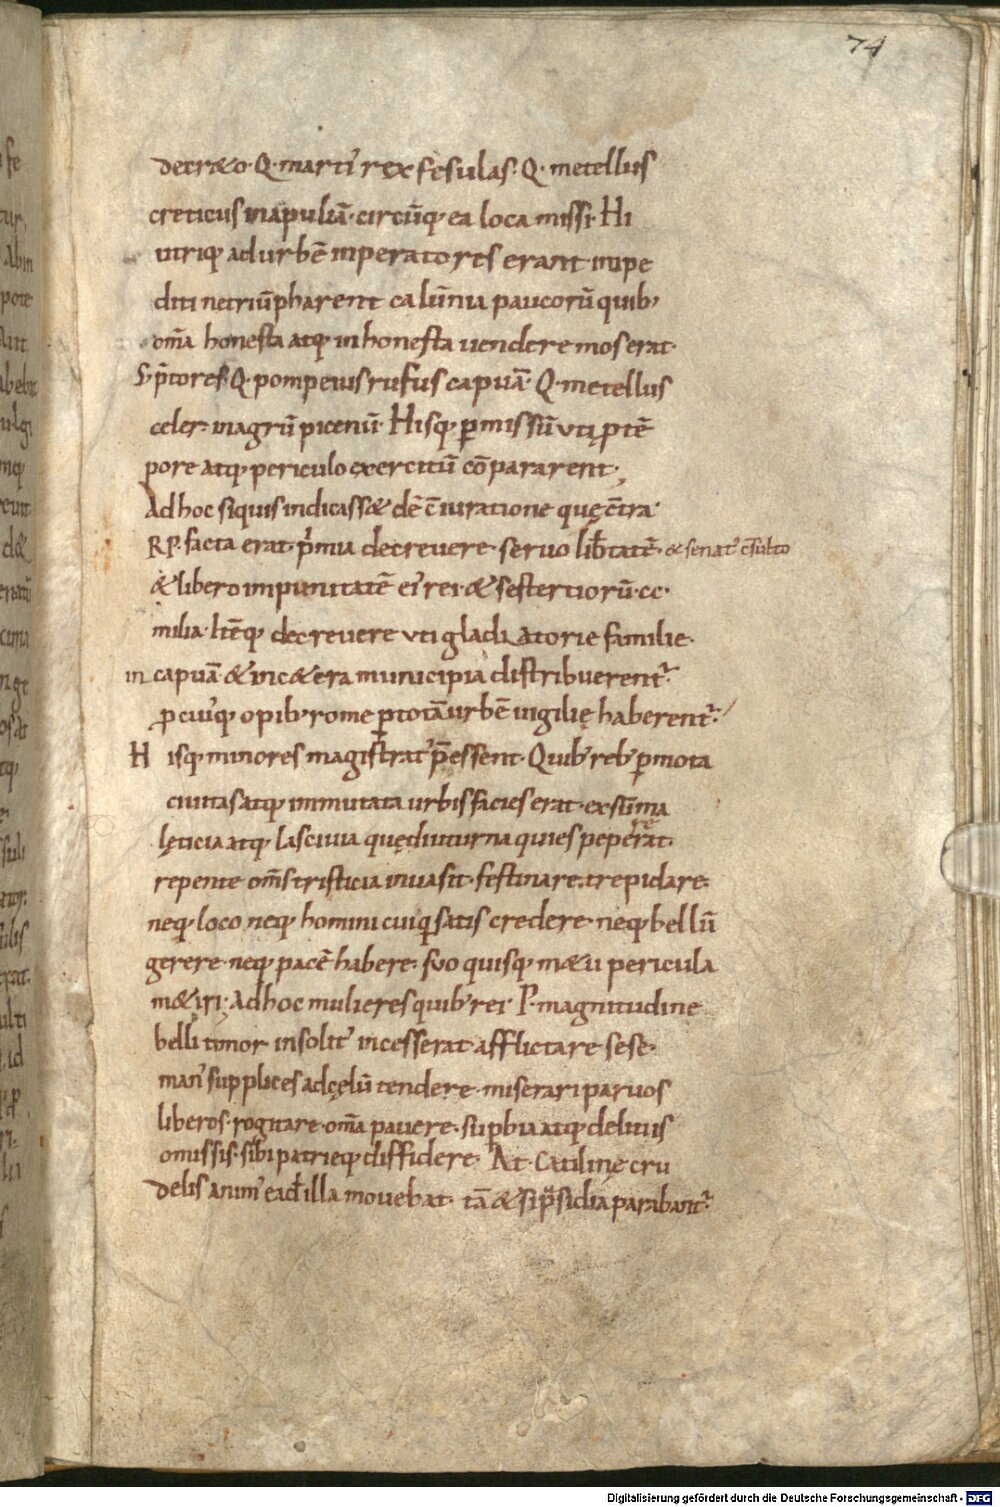 74
decr&o· Q· marti᷒ rex fesulas· Q· metellus
creticus inapuliā· circūq; ea loca missi· Hi
utriq; adurbē inperatores erant inpe
diti netriūpharent calūnia paucorū quib;
om̄a honesta atq; inhonesta uendere moserat·
S· p̄tores Q· pompeius rufus capuā· Q· metellus
celer inagrū picenū· Hisq; ꝑmissū uti ꝓtē
pore atq; periculo exercitū cōpararent;
Adhoc siquis indicass& dēc̄iuratione quęc̄tra
RP· facta erat· p̄mia decreuere seruo lib̄tatē· & senat᷒ c̄sulto
& libero impunitatē ei᷒ rei· & sestertiorū·cc·
milia· Itēq; decreuere uti gladiatorie familie·
in capuā & inc&era municipia distribuerent᷑·
ꝓcui᷒q; opib; rome ꝑtotā urbē uigilię haberent᷑·
Hisq; minores magistrat᷒ p̄essent· Quib; reb; ꝑmota
ciuitas atq; inmutata urbis facies erat· exsūma
lęticia atq; lasciuia quędiuturna quies pepererat·
repente om̄s tristicia inuasit· festinare· trepidare·
neq; loco neq; homini cuiq satis credere· neq; bellū
gerere· neq; pacē habere· suo quisq; m&u pericula
m&iri· Adhoc mulieres quib; rei· P· magnitudine
belli timor insolit᷒ incesserat· afflictare sese·
man᷒ supplices adcęlū tendere· miserari paruos
liberos· rogitare· om̄a pauere· suꝑbia atq; delitiis
omissis· sibi patrięq; diffidere· At Catilinę cru
delis anim᷒ ead̄ illa mouebat· tā&si p̄sidia parabant᷑·
Digitalisierung gefördert durch die Deutsche Forschungsgemeinschaft - DFG